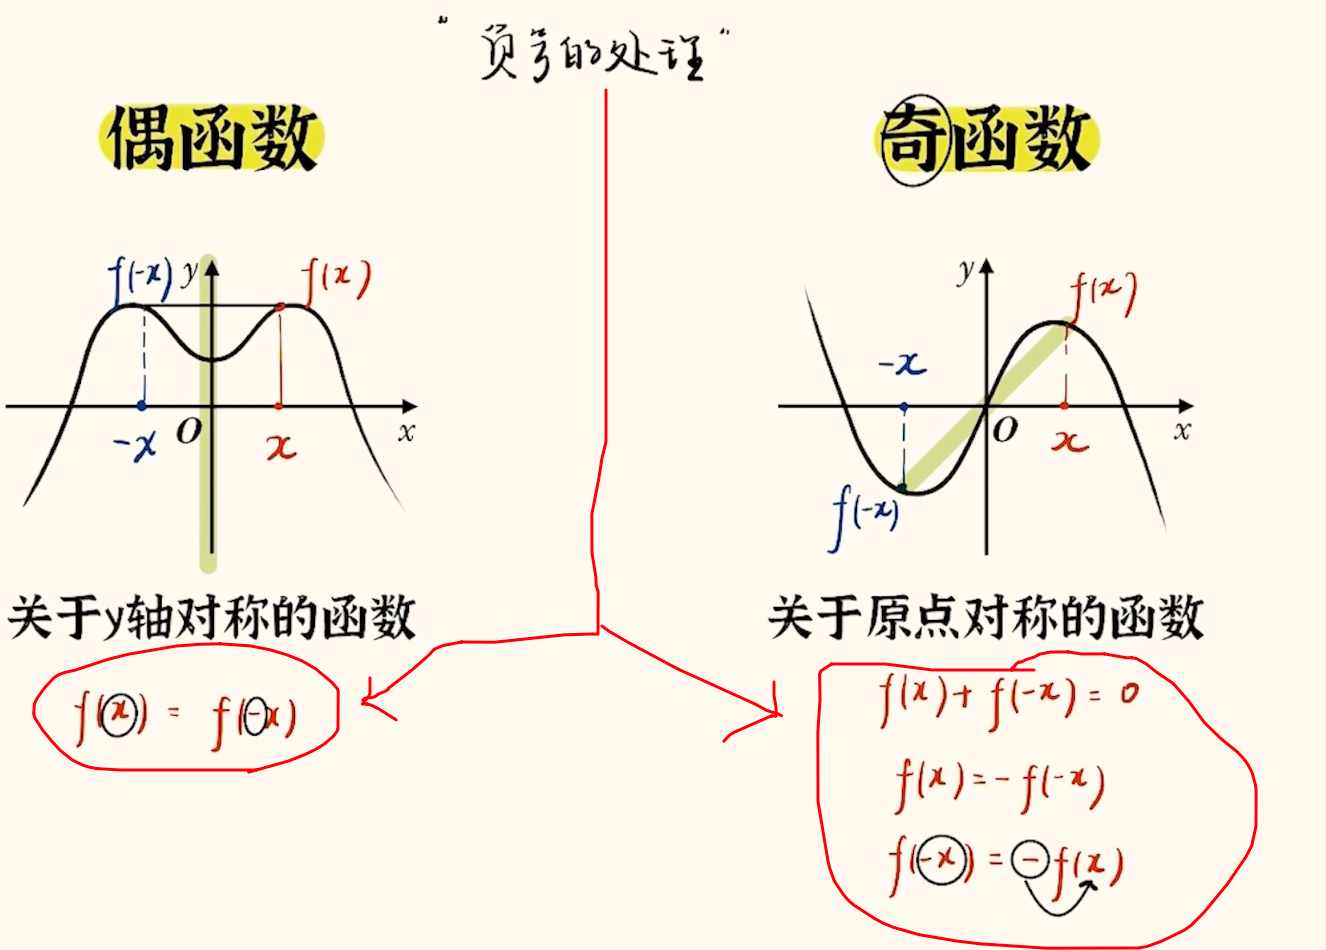 "负号的处理"
偶函数
f(-x) y f(x)
-x O x x
关于y轴对称的函数
f(x) = f(-x)
奇函数
y f(x)
-x
O x x
f(-x)
关于原点对称的函数
f(x)+f(-x)=0
f(x)=-f(-x)
f(-x)=-f(x)